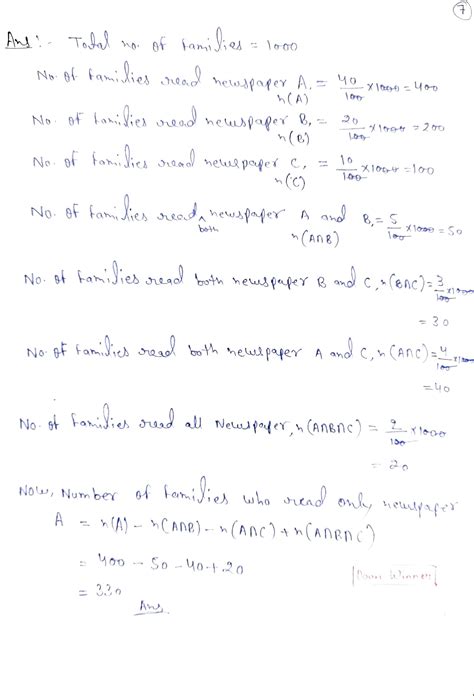 7
Ans:- Total no. of families = 1000
No. of families read newspaper A, n(A) = 40/100 ×1000 = 400
No. of families read newspaper B, n(B) = 20/100 ×1000 = 200
No. of families read newspaper C, n(C) = 10/100 ×1000 = 100
No. of families read both newspaper A and B, n(A∩B) = 5/100 ×1000 = 50
No. of families read both newspaper B and C, n(B∩C) = 3/100 ×1000
= 30
No. of families read both newspaper A and C, n(A∩C) = 4/100 ×1000
= 40
No. of families read all Newspaper, n(A∩B∩C) = 2/100 ×1000
= 20
Now, Number of families who read only newspaper
A = n(A) - n(A∩B) - n(A∩C) + n(A∩B∩C)
= 400 - 50 - 40 + 20
= 330
[ Winner]
Ans.